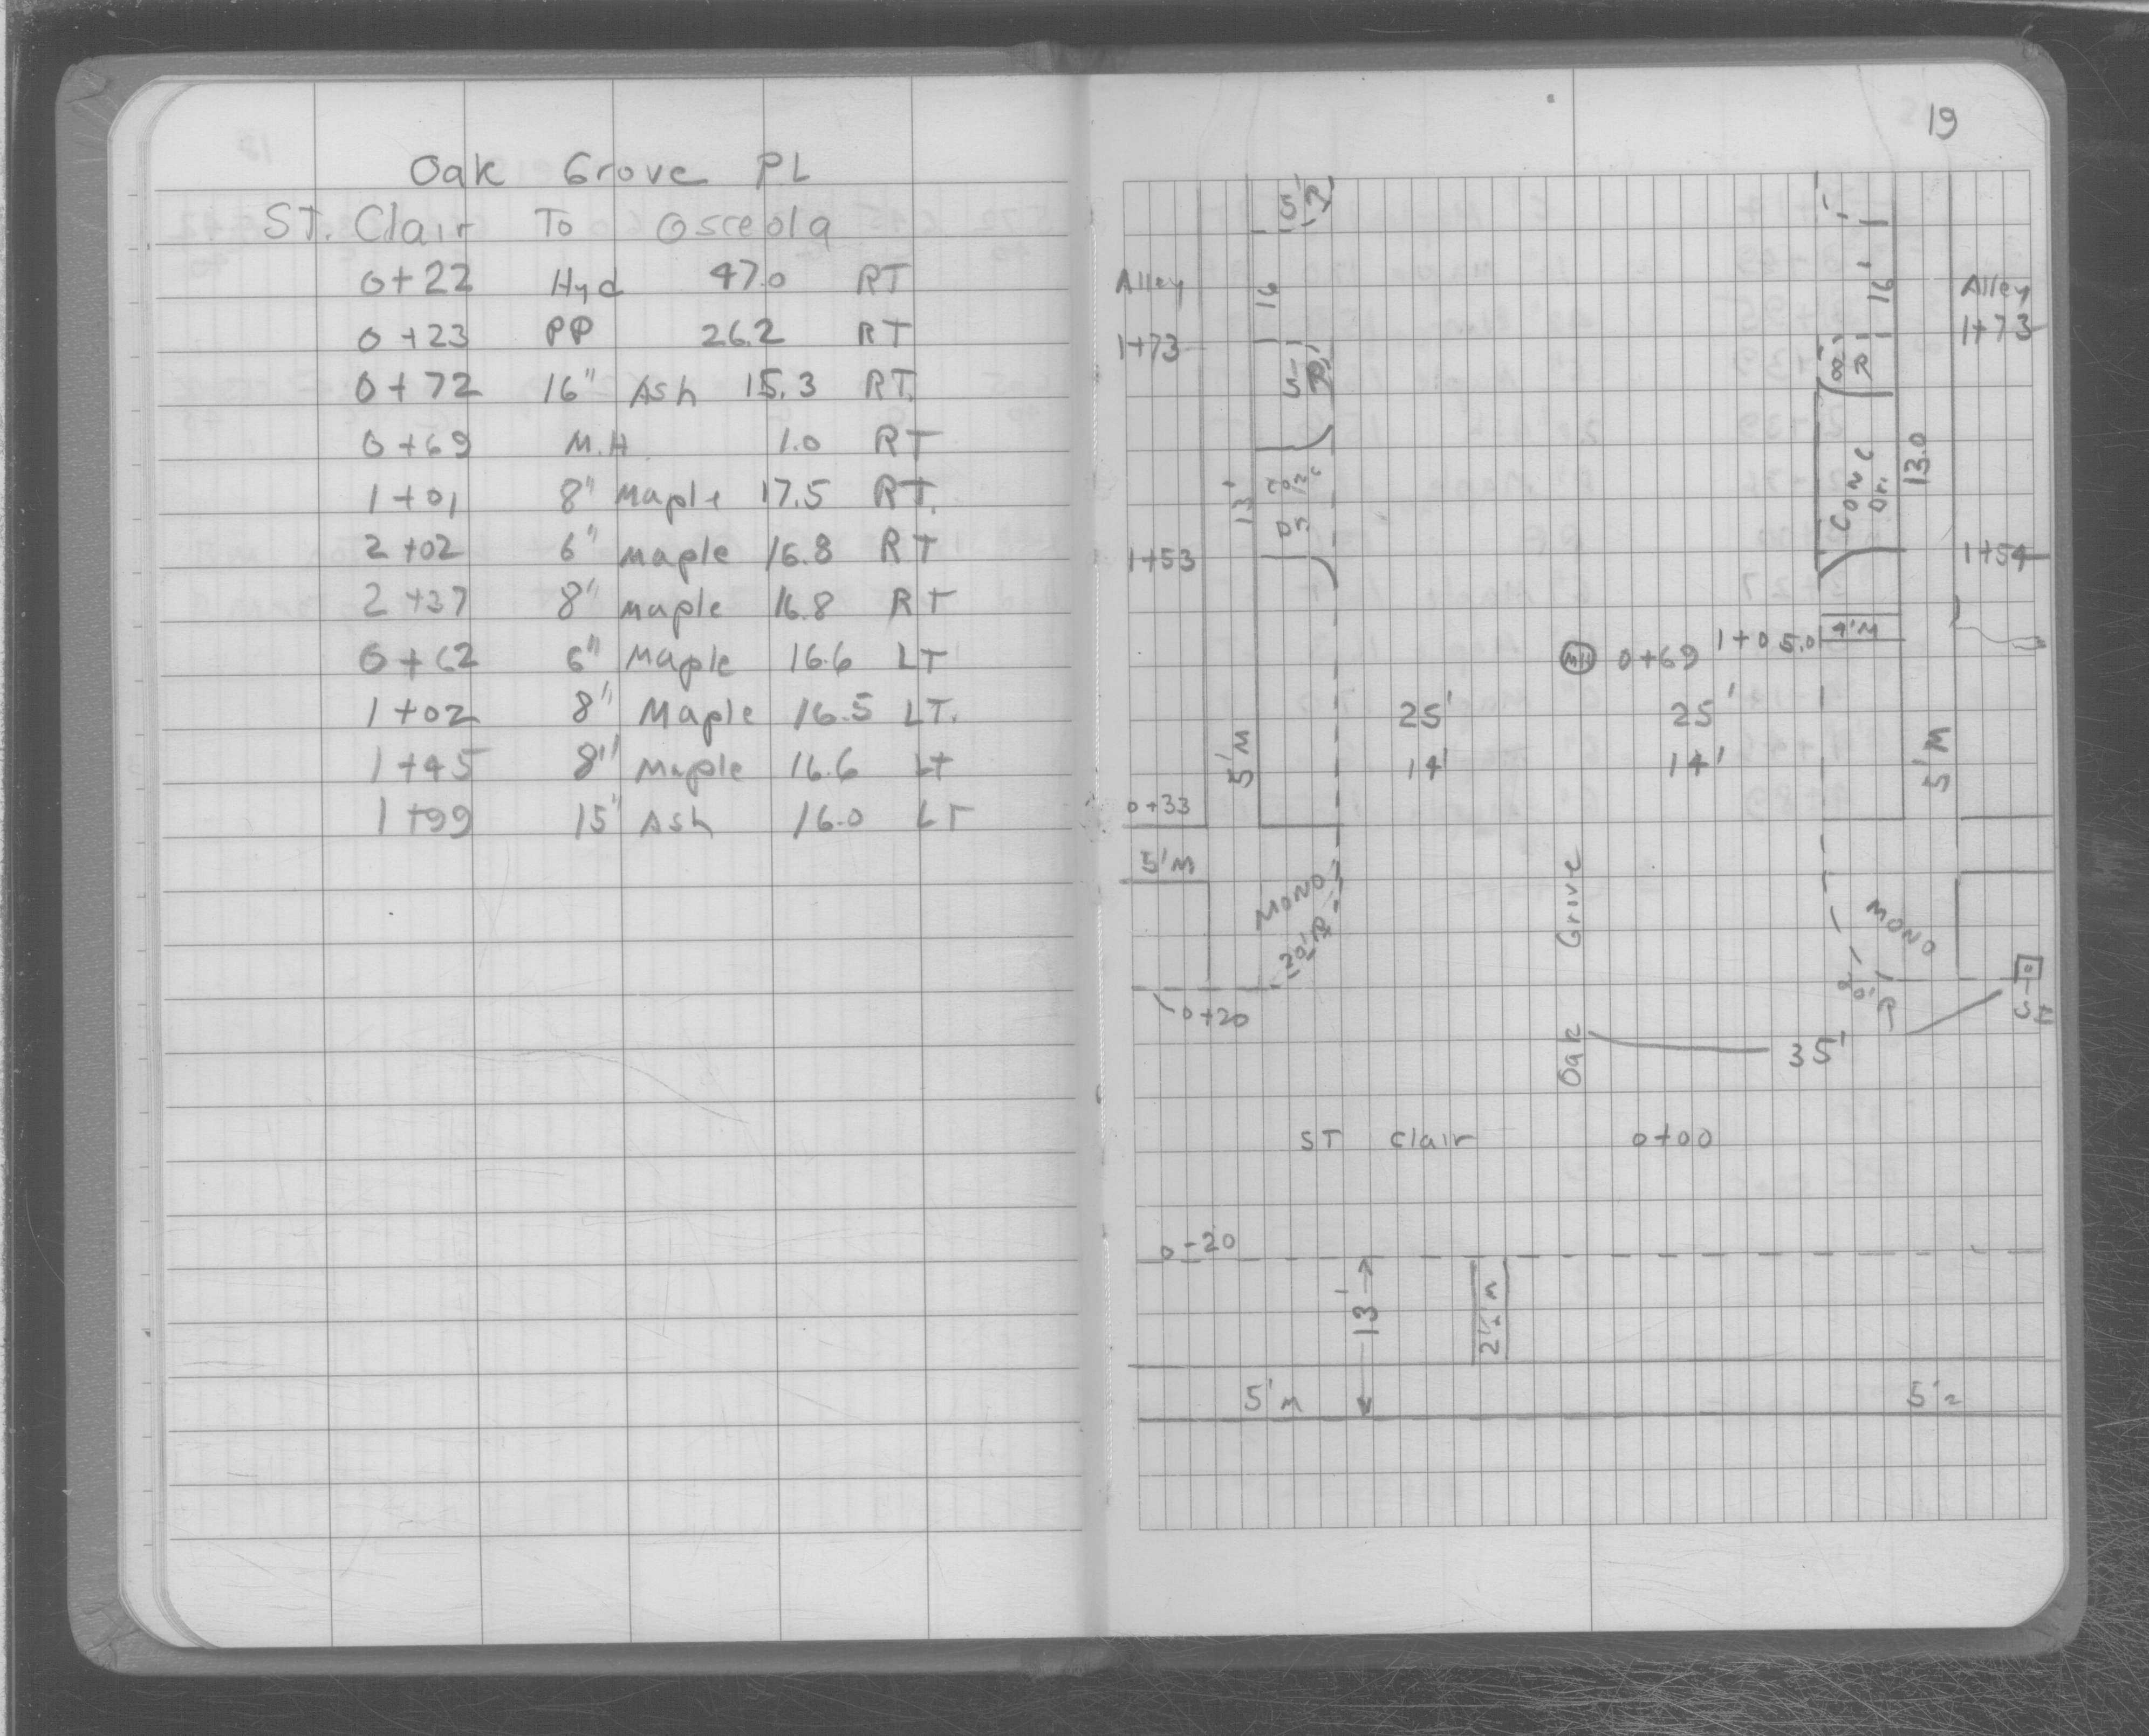 Oak Grove PL
ST. Clair To Osceola
0+22 Hyd 47.0 RT
0+23 PP 26.2 RT
0+72 16" Ash 15.3 RT.
0+69 M.H. 1.0 RT
1+01 8" Maple 17.5 RT.
2+02 6" Maple 16.8 RT
2+37 8" Maple 16.8 RT
0+62 6" Maple 16.6 LT
1+02 8" Maple 16.5 LT.
1+45 8" Maple 16.6 LT
1+99 15" Ash 16.0 LT
19
5' R
Alley 16' 16' Alley
1+73 1+73
5' R 8' R
13' Conc Dr. 13.0
1+53 1+54
MH 0+69 1+05.0 4'M
25' 25'
5'M 14' 14' 5'M
0+33
5'M
MONO 20' R Oak Grove MONO 20' R
0+20
35'
ST Clair 0+00
0-20
13' 2½'M
5'M 5'